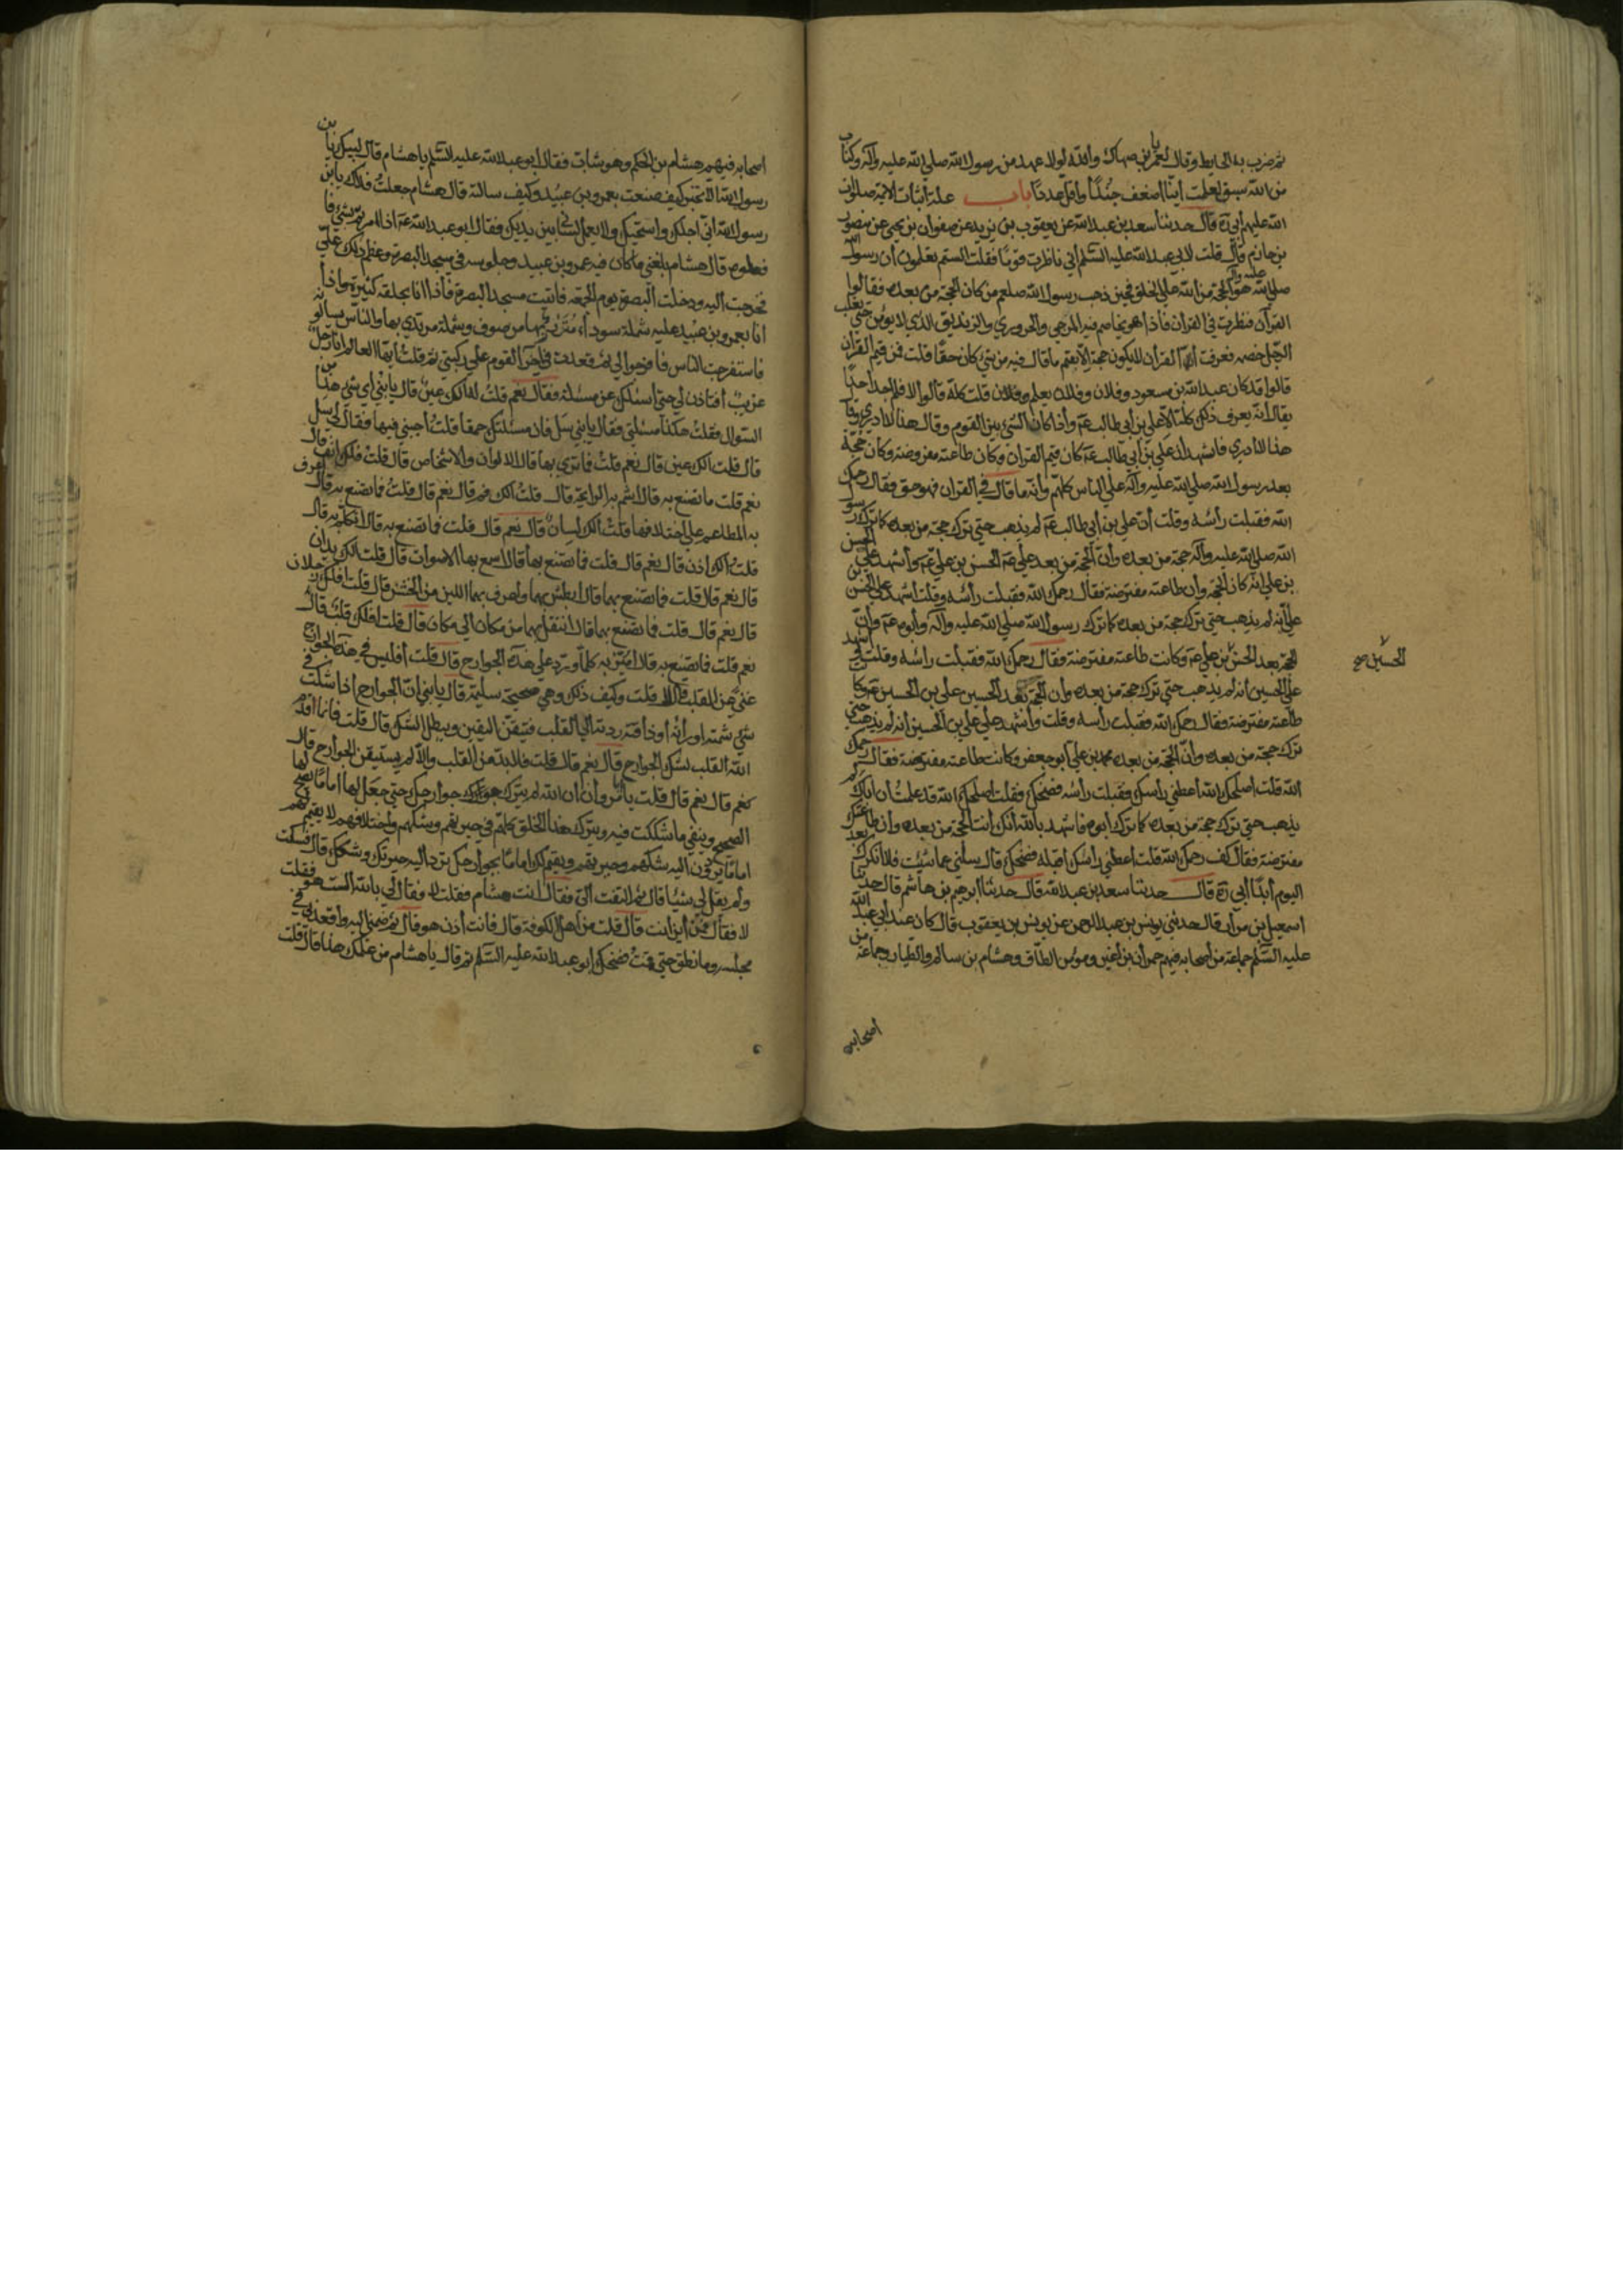 ثم ضرب به الحايط وقال لعمر يا بن صهاك والله لولا عهد من رسول الله صلي الله عليه وآله وكتاب
من الله سبق لعلمت اينا اضعف جندًا واقل عددًا باب علة اثبات الائمة صلوات
الله عليهم ابي ره قال حدثنا سعد بن عبد الله عن يعقوب بن يزيد عن صفوان بن يحيي عن منصور
بن حازم قال قلت لابي عبد الله عليه السلم اني ناظرت قومًا فقلت الستم تعلمون أن رسول الله
صلي الله عليه وآله هو الحجة من الله علي الخلق فحين ذهب رسول الله صلعم من كان الحجة من بعده فقالوا
القرآن فنظرت في القران فاذا هو يخاصم فيه المرجي والحروري والزنديق الذي لا يؤمن حتي يغلب
الرجل خصمه فعرفت أن القرأن لا يكون حجة الا بقيم ما قال فيه من شيء كان حقًا قلت فمن قيم القرأن
قالوا قد كان عبد الله بن مسعود وفلان وفلان يعلم وفلان قلت كله قالوا لا فلم اجد احدًا
يقال أنه يعرف ذلك كله الا علي بن أبي طالب عم واذا كان الشيء بين القوم وقال هذا لا ادري وقال
هذا لا ادري فاشهد أن علي بن أبي طالب عم كان قيم القران وكان طاعته مفروضة وكان حجة
بعد رسول الله صلي الله عليه وآله علي الناس كلهم وأنه ما قال في القران فهو حق فقال رحمك
الله فقبلت رأسه وقلت أن علي بن أبي طالب عم لم يذهب حتي ترك حجة من بعده كما ترك رسول
الله صلي الله عليه وآله حجة من بعده وأن الحجة من بعد علي عم الحسن بن علي عم وأشهد علي الحسن
بن علي انه كان الحجة وأن طاعته مفترضة فقال رحمك الله فقبلت رأسه وقلت أشهد علي الحسن بن
علي أنه لم يذهب حتي ترك حجة من بعده كما ترك رسول الله صلي الله عليه وآله وأبوه عم وأن
الحجة بعد الحسن بن علي عم وكانت طاعته مفترضة فقال رحمك الله فقبلت راسه وقلت اشهد
الحسين صح
علي الحسين أنه لم يذهب حتي ترك حجة من بعده وأن الحجة بعد الحسين علي بن الحسين عم وكا
طاعته مفترضة فقال رحمك الله فقبلت رأسه وقلت وأشهد علي علي بن الحسين أنه لم يذهب حتي
ترك حجة من بعده وأن الحجة من بعده محمد بن علي أبو جعفر وكانت طاعته مفترضة فقال رحمك
الله قلت اصلحك الله أعطني رأسك وقبلت رأسه فضحك وفقلت اصلحك الله قد علمت أن اباك لم
يذهب حتي ترك حجة من بعده كما ترك ابوه فاشهد بالله أنك أنت الحجة من بعده وأن طاعتك
مفترضة فقال كف رحمك الله قلت اعطني راسك اقبله فضحك قال سلني عما شئت فلا انكرك بعد
اليوم أبدًا أبي ره قال حدثنا سعد بن عبد الله قال حدثنا ابرهيم بن هاشم قال حدثنا
اسمعيل بن مرار قال حدثني يونس بن عبد الرحمن عن يونس بن يعقوب قال كان عند أبي عبد الله
عليه السلم جماعة من أصحابه فيهم حمران بن أعين ومؤمن الطاق وهشام بن سالم والطيار وجماعة من
اصحابه
اصحابه فيهم هشام بن الحكم وهو شاب فقال ابو عبد الله عليه السلم يا هشام قال لبيك يا بن
رسول الله قال الا تخبرني كيف صنعت بعمرو بن عبيد وكيف سالته قال هشام جعلت فداك يا بن
رسول الله اني اجلك واستحييك ولا يعمل لساني بين يديك فقال ابو عبد الله عم اذا امرتكم بشيء فا
فعلوه قال هشام بلغني ما كان فيه عمرو بن عبيد وجلوسه في مسجد البصرة وعظم ذلك علي
فخرجت اليه ودخلت البصرة يوم الجمعة فأتيت مسجد البصرة فأذا انا بحلقة كبيرة واذا
انا بعمرو بن عبيد عليه شملة سوداء متزر بها من صوف وشملة مرتدي بها والناس يسالونه
فاستفرجت الناس فافرجوا لي ثم قعدت في آخر القوم علي ركبتي ثم قلت أيها العالم انا رجل
غريب أفتاذن لي حتي اسئلك عن مسئلة فقال نعم قلت له الك عين قال يا بني اي شيء هذا من
السؤال فقلت هكذا مسئلتي فقال يا بني سل فان مسئلتك حمقا قلت أجبني فيها فقال لي سل
قال قلت الك عين قال نعم قلت فما تري بها قال الالوان والاشخاص قال قلت فلك انف قال
نعم قلت ما تصنع به قال اشم به الرايحة قال قلت الك فم قال نعم قال قلت فما تصنع به قال اعرف
به المطاعم علي اختلافها قلت الك لسان قال نعم قال قلت فما تصنع به قال اتكلم به قال
قلت الك اذن قال نعم قال قلت فما تصنع بها قال اسمع بها الاصوات قال قلت الك يدان
قال نعم قال قلت فما تصنع بهما قال ابطش بهما واعرف بهما اللين من الخشن قال قلت افلك رجلان
قال نعم قال قلت فما تصنع بهما قال انتقل بهما من مكان الي مكان قال قلت افلك قلب قال
نعم قلت فما تصنع به قال اميز به كلما ورد علي هذه الجوارح قال قلت أفليس في هذه الجوارح
غني عن القلب قال لا قلت وكيف ذلك وهي صحيحة سليمة قال يا بني ان الجوارح اذا شكت في
شيء شمته او رأته أو ذاقته ردته الي القلب فتيقن اليقين ويبطل الشك قال قلت فانما اقام
الله القلب لشك الجوارح قال نعم قال قلت فلا بد من القلب والا لم يستيقن الجوارح قال
نعم قال نعم قال قلت يا با مروان أن الله لم يترك جوارحك حتي جعل لها اماما يصحح لها
الصحيح وينفي ما شككت فيه ويترك هذا الخلق كلهم في حيرتهم وشكهم واختلافهم لا يقيم لهم
اماما يردون اليه شكهم وحيرتهم ويقيم لك اماما بجوارحك ترد اليه حيرتك وشكك قال فسكت
ولم يقل لي شيئا قال ثم التفت الي فقال انت هشام فقلت لا فقال لي بالله الست هو فقلت
لا فقال فمن أين انت قال قلت من اهل الكوفة قال فانت أذن هو قال ثم ضمني اليه واقعدني في
مجلسه وما نطق حتي قمت فضحك ابو عبد الله عليه السلم ثم قال يا هشام من علمك هذا قال قلت